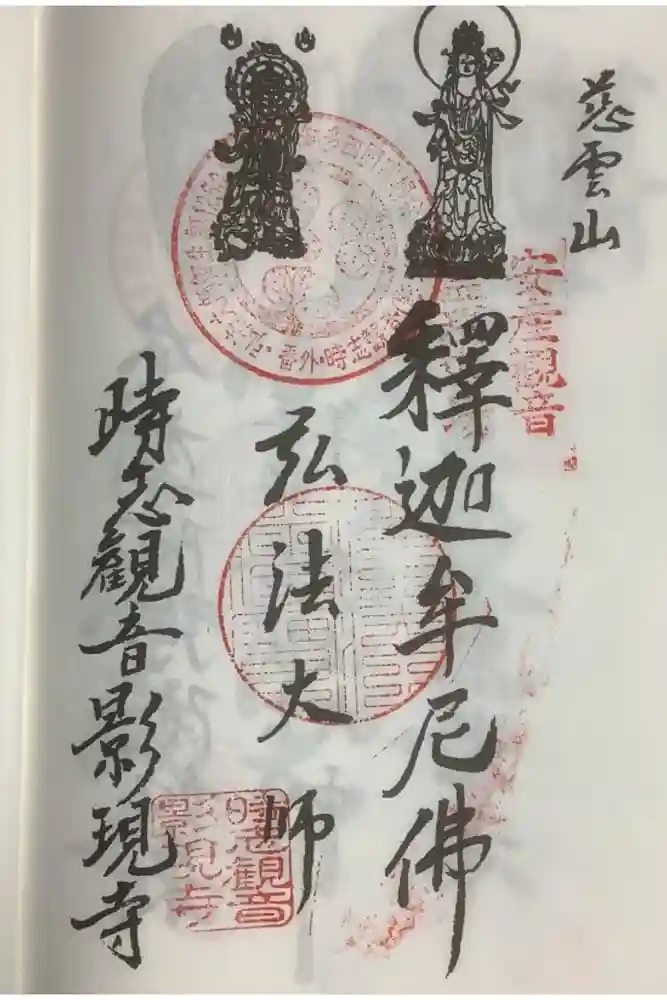 慈雲山
安産觀音
釋迦牟尼佛
弘法大師
番外・時志観
時志觀音影現寺
時志觀音
影見寺